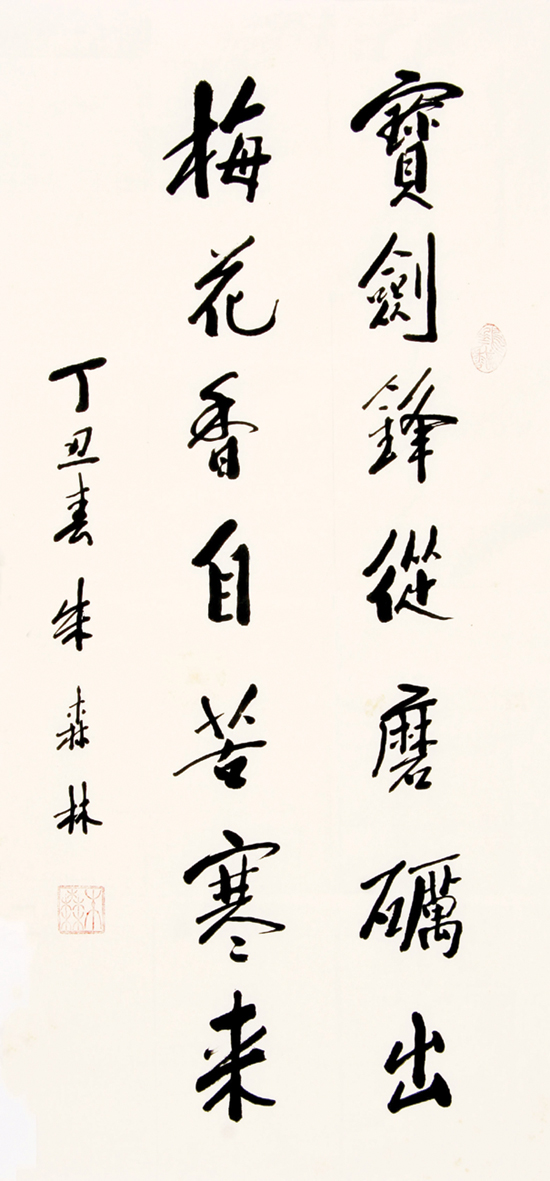 寶劍鋒從磨礪出
梅花香自苦寒来
丁丑春朱森林